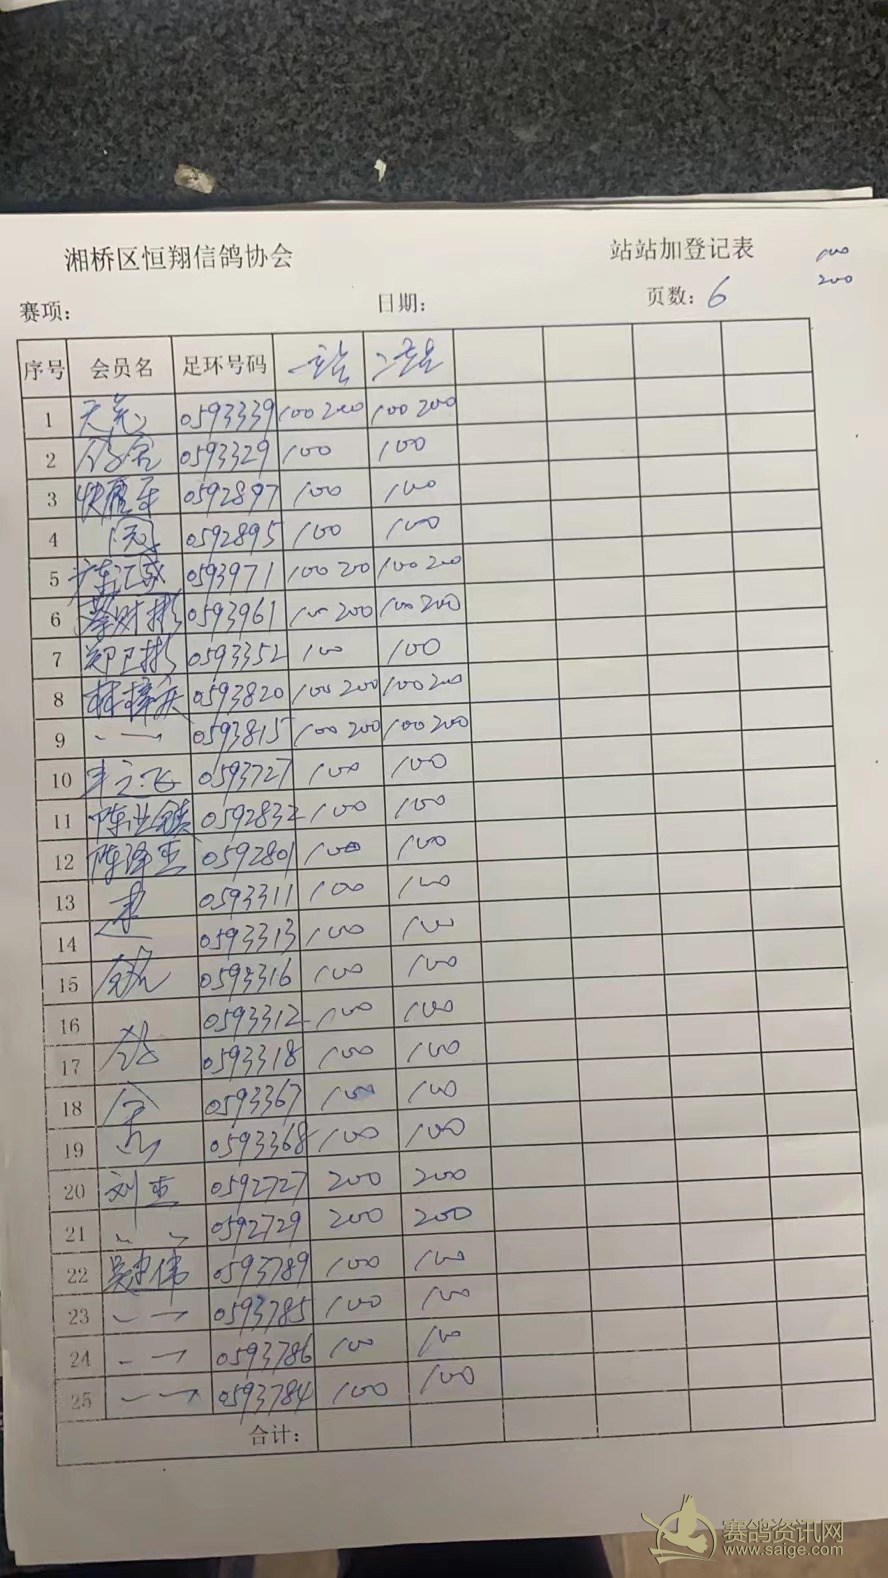 湘桥区恒翔信鸽协会 站站加登记表 100
200
赛项: 日期: 页数: 6
序号 会员名 足环号码 一站 二站
1 天 0593339 100 200 100 200
2 0593329 100 100
3 快鹰车 0592897 100 100
4 0592895 100 100
5 广东汇威 0593971 100 200 100 200
6 蔡财彬 0593961 100 200 100 200
7 郑卫彬 0593352 100 100
8 林梓庆 0593820 100 200 100 200
9 0593815 100 200 100 200
10 0593727 100 100
11 陈世镇 0592832 100 100
12 陈泽亚 0592801 100 100
13 0593311 100 100
14 0593313 100 100
15 0593316 100 100
16 0593312 100 100
17 0593318 100 100
18 0593367 100 100
19 0593368 100 100
20 刘 0592727 200 200
21 0592729 200 200
22 吴伟 0593789 100 100
23 0593785 100 100
24 0593786 100 100
25 0593784 100 100
合计:
赛鸽资讯网
www.saige.com